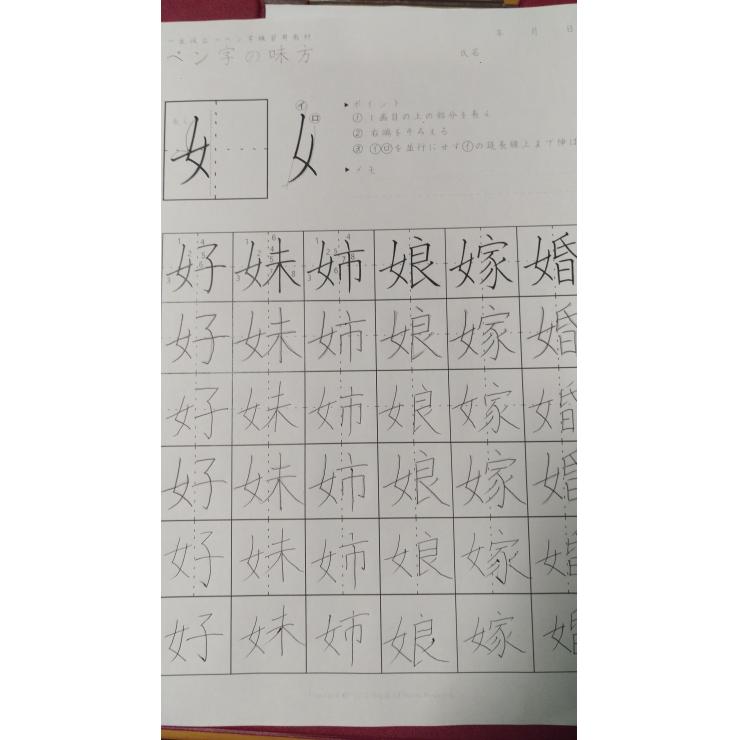 一生役立つペン字練習用教材
ペン字の味方
年 月 日
氏名
女
イ
ロ
▶ポイント
① 1画目の上の部分を長く
② 右端をそろえる
③ ㋑㋺を並行にせず㋑の延長線上まで伸ば
▶メモ
好 妹 姉 娘 嫁 婚
好 妹 姉 娘 嫁 婚
好 妹 姉 娘 嫁 婚
好 妹 姉 娘 嫁 婚
好 妹 姉 娘 嫁 婚
好 妹 姉 娘 嫁 婚